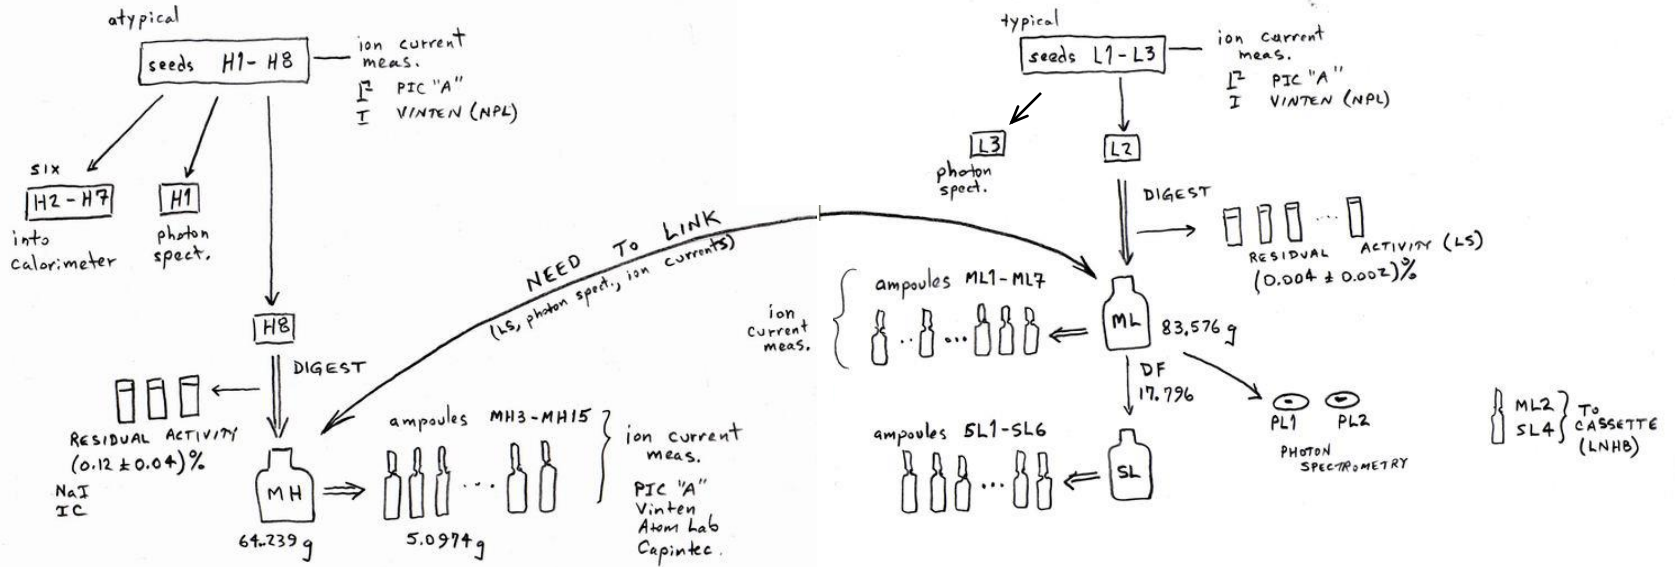 atypical
seeds H1-H8
ion current
meas.
I² PIC "A"
I VINTEN (NPL)
SIX
H2-H7
into
calorimeter
H1
photon
spect.
H8
DIGEST
RESIDUAL ACTIVITY
(0.12 ± 0.04)%
NaI
IC
MH
64.239 g
ampoules MH3-MH15
5.0974 g
ion current
meas.
PIC "A"
Vinten
Atom Lab
Capintec.
NEED TO LINK
(LS, photon spect., ion currents)
typical
seeds L1-L3
ion current
meas.
I² PIC "A"
I VINTEN (NPL)
L3
photon
spect.
L2
DIGEST
RESIDUAL ACTIVITY (LS)
(0.004 ± 0.002)%
ampoules ML1-ML7
ion
current
meas.
ML
83.576 g
DF
17.796
ampoules SL1-SL6
SL
PL1 PL2
PHOTON
SPECTROMETRY
ML2
SL4
TO
CASSETTE
(LNHB)